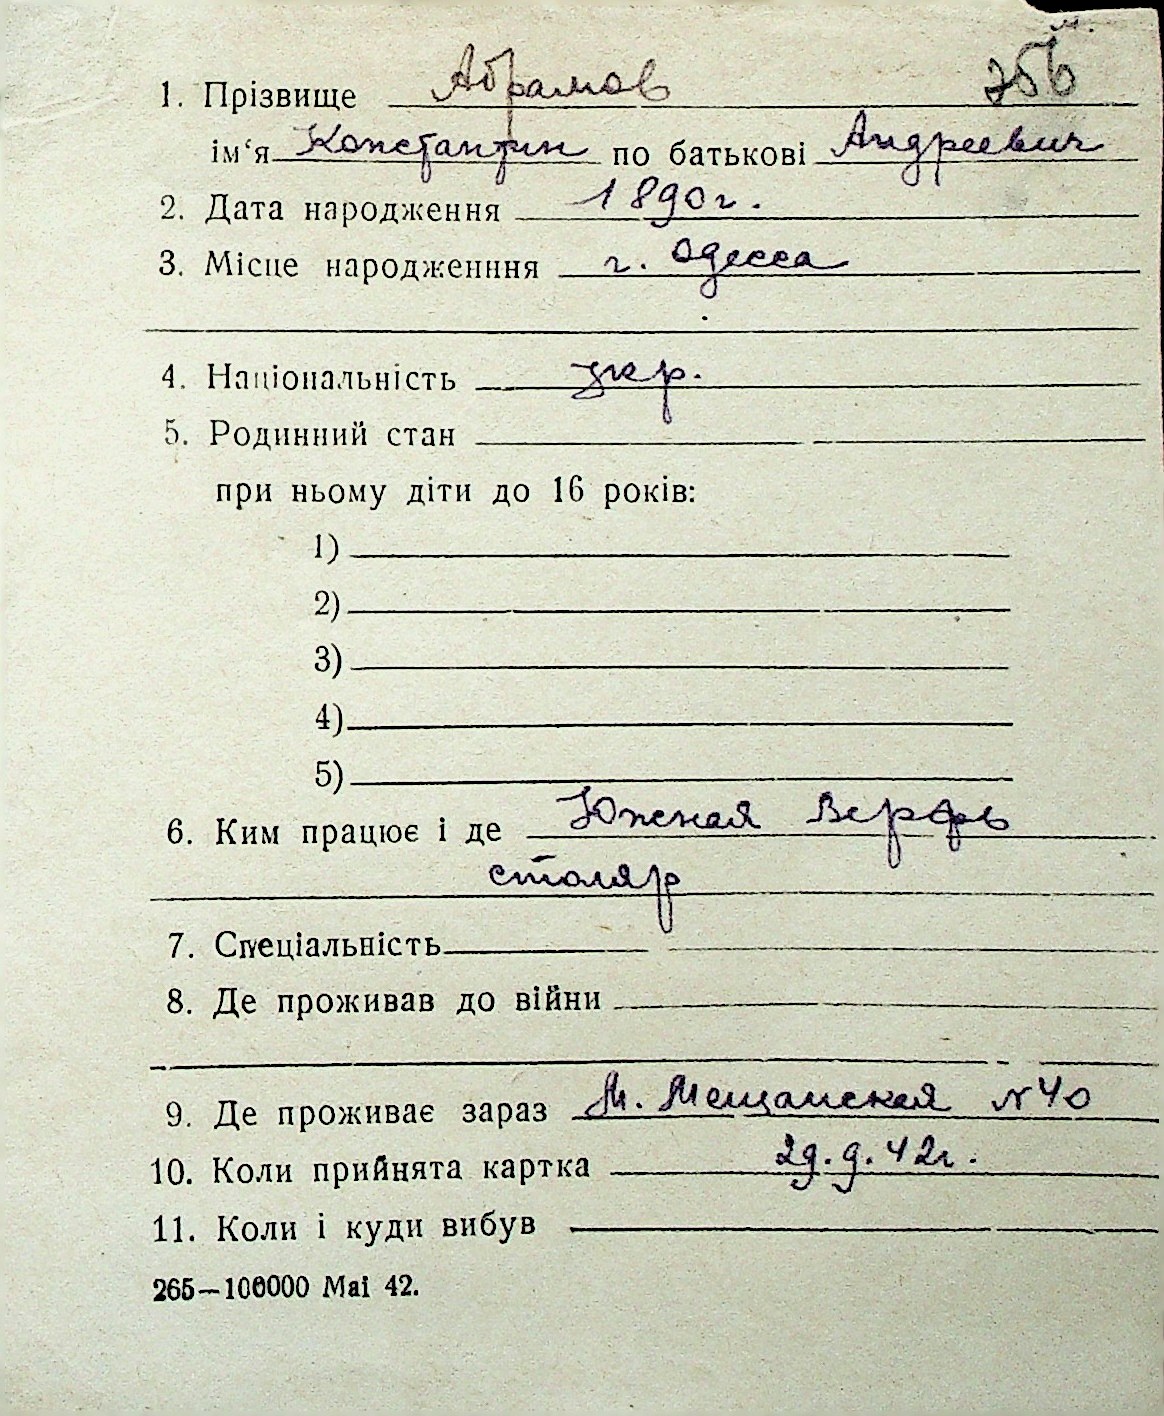 м.
1. Прізвище Абрамов
ім‘я Константин по батькові Андреевич
2. Дата народження 1890г.
3. Місце народженння г. Одесса
4. Національність укр.
5. Родинний стан
при ньому діти до 16 років:
1)
2)
3)
4)
5)
6. Ким працює і де Южная Верфь
столяр
7. Спеціальність
8. Де проживав до війни
9. Де проживає зараз М. Мещанская №40
10. Коли прийнята картка 29.9.42г.
11. Коли і куди вибув
265—100000 Mai 42.